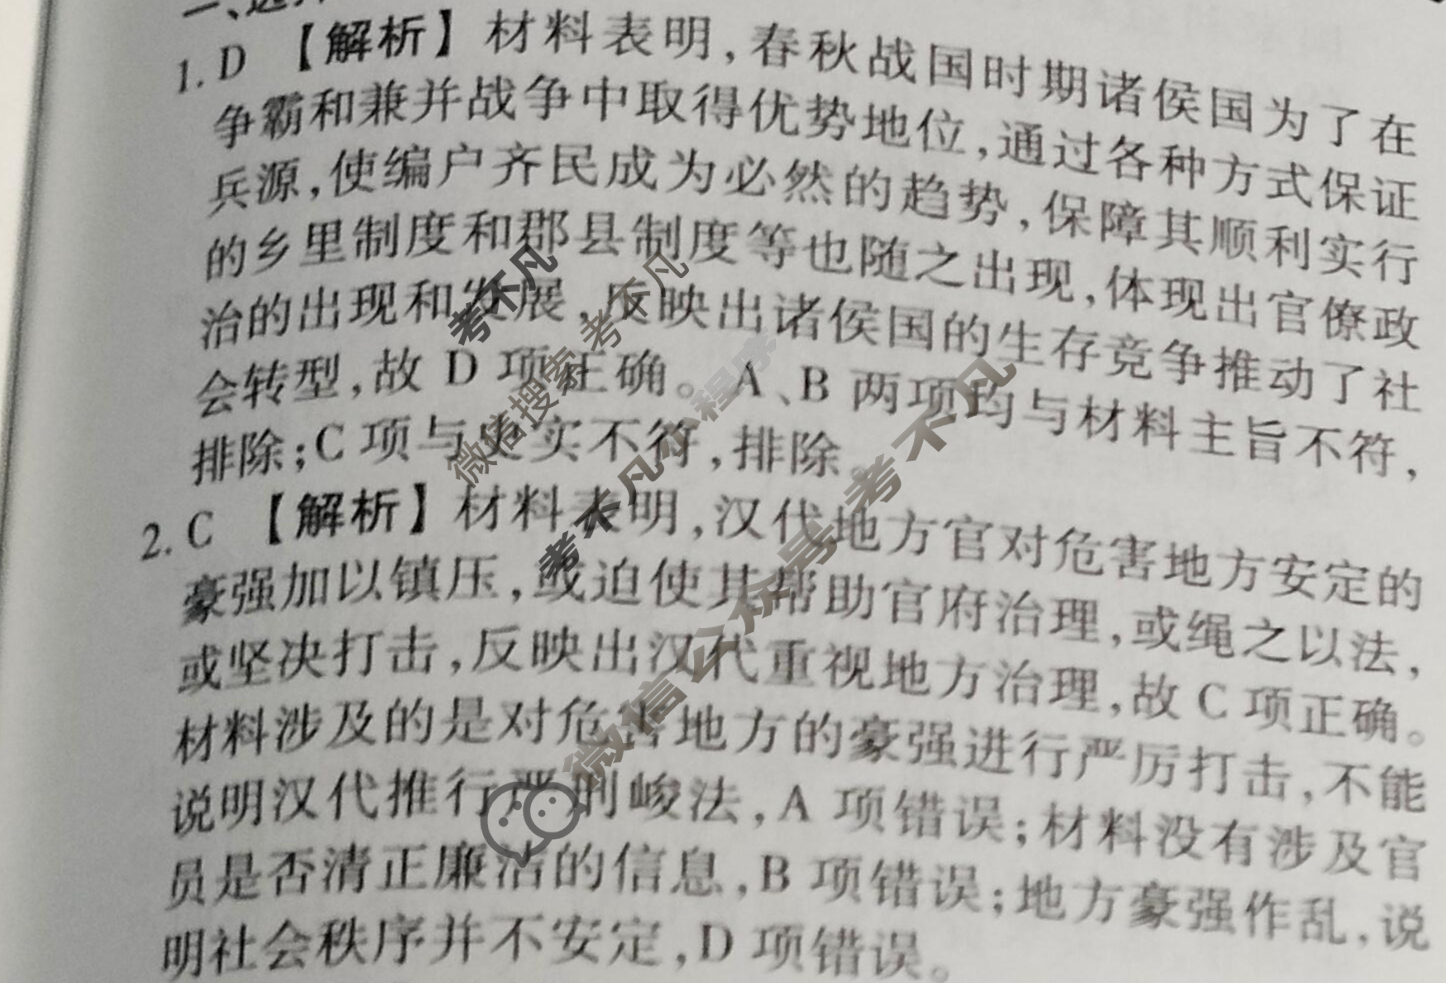 一、选
1. D 【解析】材料表明,春秋战国时期诸侯国为了在
争霸和兼并战争中取得优势地位,通过各种方式保证
兵源,使编户齐民成为必然的趋势,保障其顺利实行
的乡里制度和郡县制度等也随之出现,体现出官僚政
治的出现和发展,反映出诸侯国的生存竞争推动了社
会转型,故 D 项正确。A、B 两项均与材料主旨不符,
排除;C 项与史实不符,排除。
2. C 【解析】材料表明,汉代地方官对危害地方安定的
豪强加以镇压,或迫使其帮助官府治理,或绳之以法,
或坚决打击,反映出汉代重视地方治理,故 C 项正确。
材料涉及的是对危害地方的豪强进行严厉打击,不能
说明汉代推行严刑峻法,A 项错误;材料没有涉及官
员是否清正廉洁的信息,B 项错误;地方豪强作乱,说
明社会秩序并不安定,D 项错误。
考不凡
微信搜索 考不凡
考不凡小程序
微信公众号 考不凡